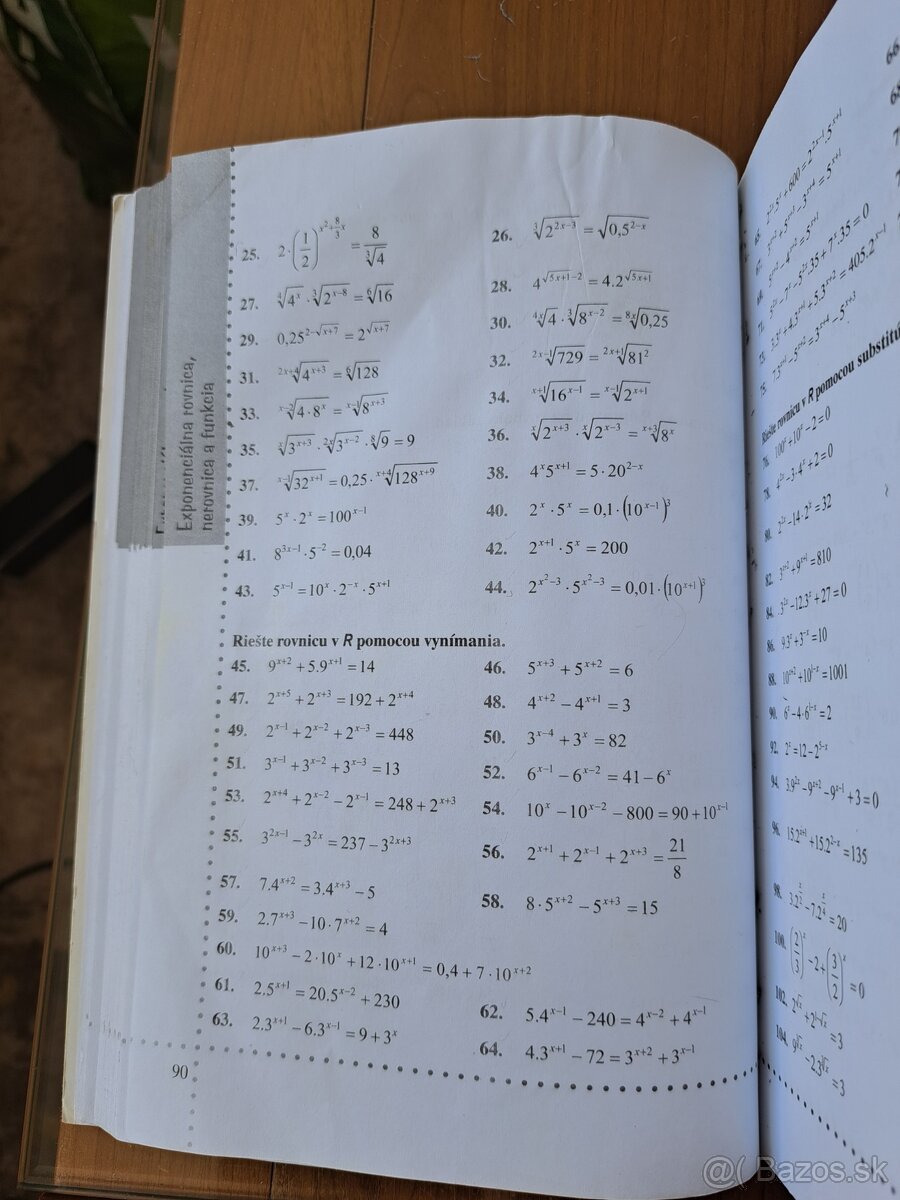 Exponenciálna rovnica,
nerovnica a funkcia
25. 2·(1/2)^(x²+(8/3)x) = 8/∛4
26. ∛(2^(2x−3)) = √(0,5^(2−x))
27. ∜(4^x) · ∛(2^(x−8)) = ⁶√16
28. 4^(√(5x+1)−2) = 4.2^(√(5x+1))
29. 0,25^(2−√(x+7)) = 2^(√(x+7))
30. ^(4x)√4 · ∛(8^(x−2)) = ^(8x)√(0,25)
31. ^(2x+4)√(4^(x+3)) = ⁶√128
32. ^(2x−1)√729 = ^(2x+1)√(81²)
33. ^(x−2)√(4·8^x) = ^(x−1)√(8^(x+3))
34. ^(x+1)√(16^(x−1)) = ^(x−1)√(2^(x+1))
35. ^x√(3^(x+3)) · ^(2x)√(3^(x−2)) · ⁸√9 = 9
36. ^x√(2^(x+3)) · ^x√(2^(x−3)) = ^(x+3)√(8^x)
37. ^(x−1)√(32^(x+1)) = 0,25 · ^(x+4)√(128^(x+9))
38. 4^x 5^(x+1) = 5·20^(2−x)
39. 5^x · 2^x = 100^(x−1)
40. 2^x · 5^x = 0,1·(10^(x−1))³
41. 8^(3x−1) · 5^(−2) = 0,04
42. 2^(x+1) · 5^x = 200
43. 5^(x−1) = 10^x · 2^(−x) · 5^(x+1)
44. 2^(x²−3) · 5^(x²−3) = 0,01·(10^(x+1))³
Riešte rovnicu v R pomocou vynímania.
45. 9^(x+2) + 5.9^(x+1) = 14
46. 5^(x+3) + 5^(x+2) = 6
47. 2^(x+5) + 2^(x+3) = 192 + 2^(x+4)
48. 4^(x+2) − 4^(x+1) = 3
49. 2^(x−1) + 2^(x−2) + 2^(x−3) = 448
50. 3^(x−4) + 3^x = 82
51. 3^(x−1) + 3^(x−2) + 3^(x−3) = 13
52. 6^(x−1) − 6^(x−2) = 41 − 6^x
53. 2^(x+4) + 2^(x−2) − 2^(x−1) = 248 + 2^(x+3)
54. 10^x − 10^(x−2) − 800 = 90 + 10^(x−1)
55. 3^(2x−1) − 3^(2x) = 237 − 3^(2x+3)
56. 2^(x+1) + 2^(x−1) + 2^(x+3) = 21/8
57. 7.4^(x+2) = 3.4^(x+3) − 5
58. 8·5^(x+2) − 5^(x+3) = 15
59. 2.7^(x+3) − 10·7^(x+2) = 4
60. 10^(x+3) − 2·10^x + 12·10^(x+1) = 0,4 + 7·10^(x+2)
61. 2.5^(x+1) = 20.5^(x−2) + 230
62. 5.4^(x−1) − 240 = 4^(x−2) + 4^(x−1)
63. 2.3^(x+1) − 6.3^(x−1) = 9 + 3^x
64. 4.3^(x+1) − 72 = 3^(x+2) + 3^(x−1)
90
Riešte rovnicu v R pomocou
76. 100^x + 10^x − 2 = 0
78. 4^(2x) − 3·4^x + 2 = 0
80. 2^(2x) − 14·2^x = 32
82. 3^(x+2) + 9^(x+1) = 810
84. 3^(2x) − 12.3^x + 27 = 0
86. 9.3^x + 3^(−x) = 10
88. 10^(x+2) + 10^(1−x) = 1001
90. 6^x − 4·6^(1−x) = 2
92. 2^x = 12 − 2^(5−x)
94. 3.9^(2x) − 9^(x+2) − 9^(x−1) + 3 = 0
96. 15.2^(x+1) + 15.2^(2−x) = 135
98. 3.2^(x/2) − 7.2^(x/4) = 20
100. (2/3)^x − 2 + (3/2)^x = 0
@( Bazos.sk